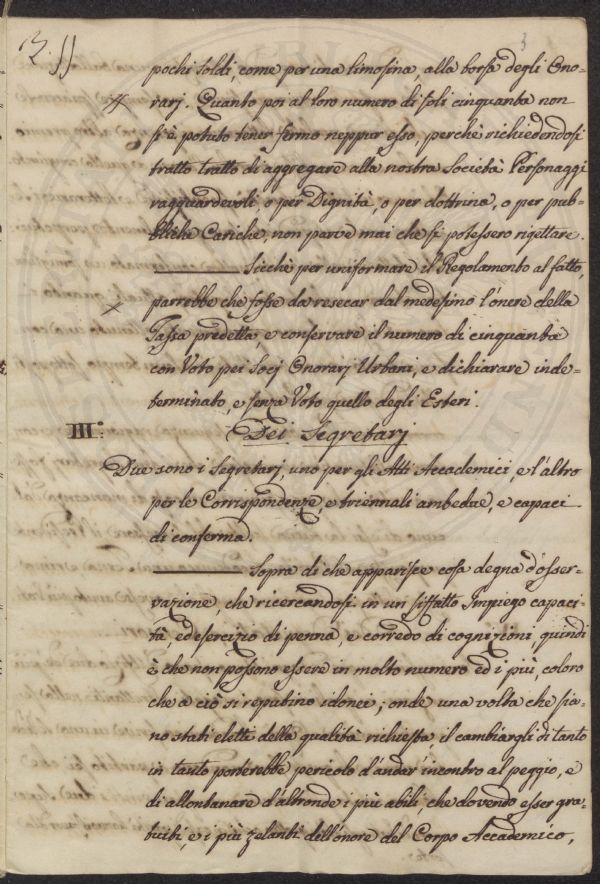 3
pochi soldi, come per una limosina, alla borsa degli Ono=
rarj. Quanto poi al loro numero di soli cinquanta non
si è potuto tener fermo neppur esso, perchè richiedendosi
tratto tratto di aggregare alla nostra Società Personaggi
ragguardevoli o per Dignità, o per dottrina, o per pub=
bliche Cariche, non parve mai che si potessero rigettare.
Sicchè per uniformare il Regolamento al fatto,
parrebbe che fosse da resecar dal medesimo l'onere della
Tassa predetta, e conservare il numero di cinquanta
con Voto pei Socj Onorarj Urbani, e dichiarare inde=
terminato, e senza Voto quello degli Esteri.
III.° Dei Segretarj
Due sono i Segretarj, uno per gli Atti Accademici, e l'altro
per le Corrispondenze, e triennali ambedue, e capaci
di conferma.
Sopra di che apparisce cosa degna d'osser=
vazione, che ricercandosi in un siffatto Impiego capaci=
tà, ed esercizio di penna, e corredo di cognizioni, quindi
è che non possono essere in molto numero ed i più, coloro
che a ciò si reputino idonei; onde una volta che sia=
no stati eletti della qualità richiesta, il cambiargli di tanto
in tanto porterebbe pericolo d'andar incontro al peggio, e
di allontanare d'altronde i più abili, che dovendo esser gra=
tuiti, e i più zelanti dell'onore del Corpo Accademico,